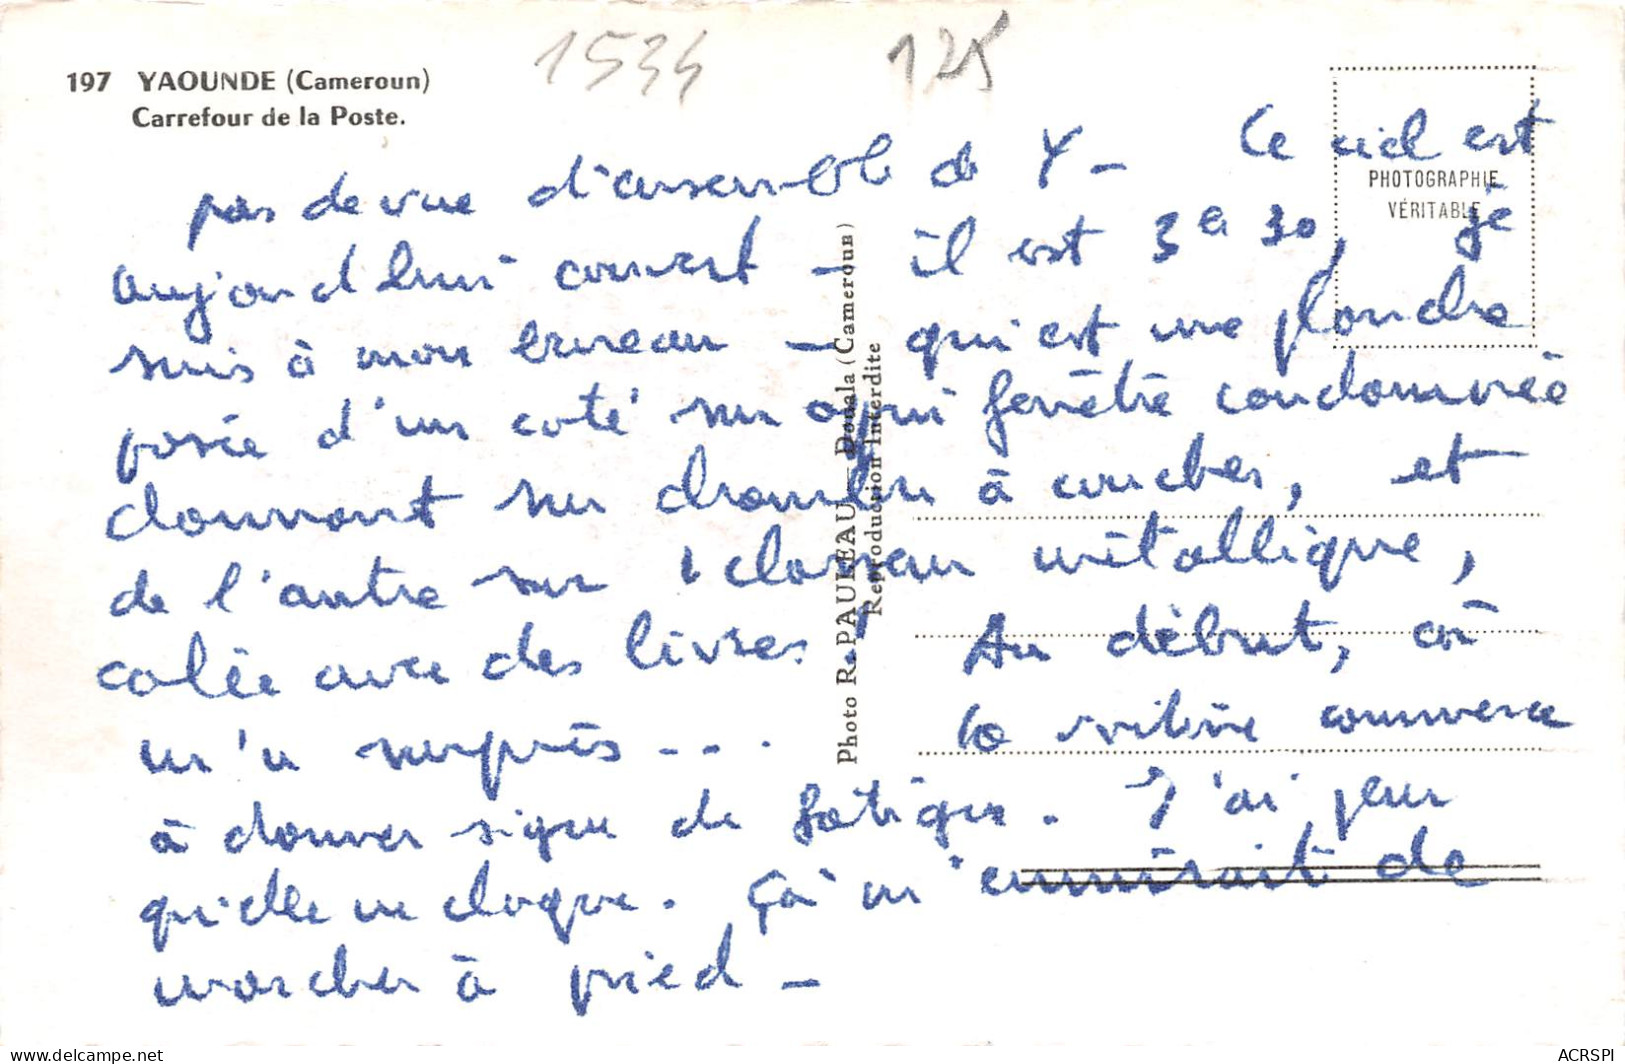 1534 125
197 YAOUNDE (Cameroun)
Carrefour de la Poste.
PHOTOGRAPHIE
VÉRITABLE
pas de vue d'ensemble de Y - Ce ciel est
aujourd'hui couvert - il est 3 30, je
suis à mon bureau - qui est une planche
posée d'un coté sur appui fenêtre condamnée
donnant sur chambre à coucher, et
de l'autre sur 1 classeur métallique,
calée avec des livres! Au début, ça
m'a surpris... la voiture commence
à donner signe de fatigue. J'ai peur
qu'elle ne claque. Ça m'ennuirait de
marcher à pied -
Photo R. PAULEAU - Douala (Cameroun)
Reproduction Interdite
ACRSPI